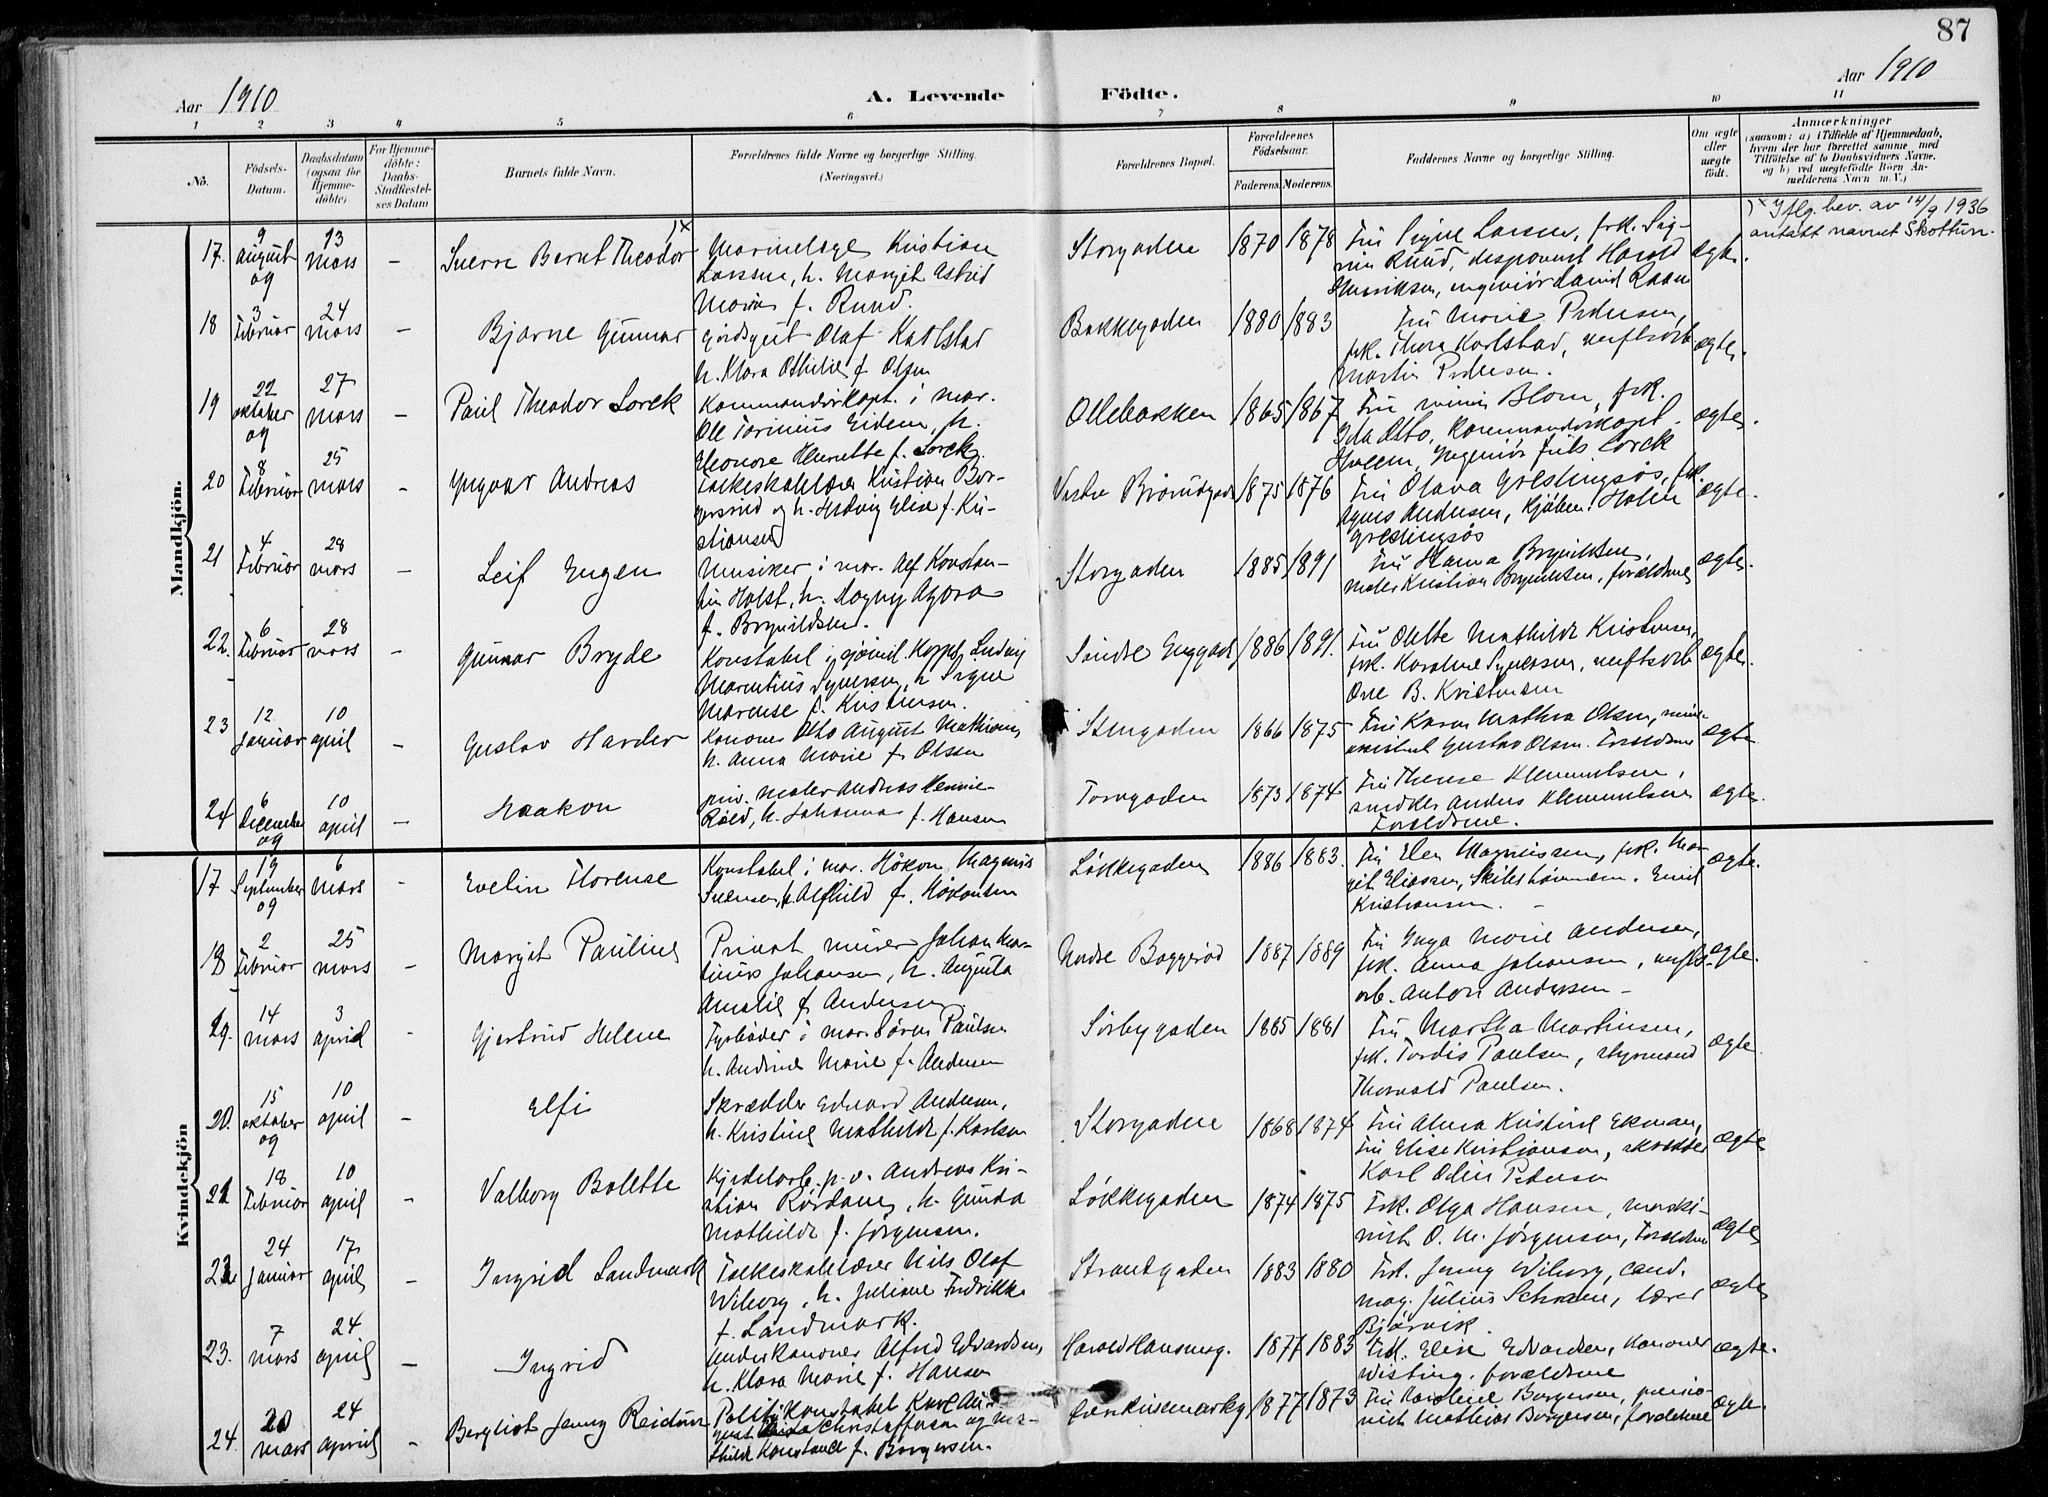 87
Aar 1910
A. Levende Födte.
Aar 1910
1 2 3 4 5 6 7 8 9 10 11
No.
Födsels-Datum.
Daabsdatum (ogsaa for Hjemme-döbte)
For Hjemme-döbte: Daabs-Stadfæstel-ses Datum
Barnets fulde Navn.
Forældrenes fulde Navne og borgerlige Stilling.
(Næringsvei.)
Forældrenes Bopæl.
Forældrenes Födselsaar.
Faderens. Moderens.
Faddernes Navne og borgerlige Stilling.
Om ægte eller uægte födt.
Anmærkninger
(saasom: a) i Tilfælde af Hjemmedaab,
hvem der har forrettet samme, med
Tilföielse af to Daabsvidners Navne.
og b) ved uægtefödte Börn An-
melderens Navn m. V.)
Mandkjön.
17. 9 august 09 13 mars – Sverre Bernt Theodor )x
Marinelæge Kristian
Larssen, h. Margit Astrid
Maria f. Ruud.
Storgaden 1870 1878
Fru Signe Larsen, frk. Sig-
Ruud, disponent Harald
Henriksen, ingeniør David
ægte.
)x Iflg. bev. av 14/9 1936
antatt navnet Skottun.
18 3 Februar 24 mars – Bjarne Gunnar
Gårdsgut Olaf Karlstad
h. Klara Othilie f Olsen
Bakkegaden 1880 1883
Fru Marie Pedersen,
frk. Thora Karlstad, verftsarb
Martin Pedersen.
ægte.
19 22 oktober 09 27 mars – Paul Theodor Lorck
Kommandørkapt. i mar.
Ole Eidem, h.
Eleonore Henriette f. Lorck.
Ollebakken 1865 1867
Fru Blom, frk.
Ida Otto, Kommandørkapt.
Ingeniør Lorck
ægte.
20 8 Februar 25 mars – Yngvar Andreas
Folkeskolelærer Kristian Bor-
gersrud og h. Hedvig Elise f. Kri-
stiansen
1875 1876
Fru Olava Greslingsøs, frk.
Agnes Andersen, Kjøbm. Holm
Grestingsøs
ægte.
21 4 Februar 28 mars – Leif Eugen
Musiker i mar. Alf Konstan-
tin Holst, h. Dagny Agora
f. Brynildsen.
Storgaden 1885 1891
Fru Hanna Brynildsen,
maler Kristian Brynildsen, forældrene
ægte.
22. 6 Februar 28 mars – Gunnar Bryde
Konstabel i sjømil. Korps Ludvig
Marentius Syversen, h Signe
Marense f. Kristensen.
Søndre Enggad 1886 1891.
Fru Olette Mathilde Kristensen,
frk. Karoline Syversen, verftsarb
Ove B. Kristensen
ægte.
23 12 Januar 10 april – Gustav Harder
Kanoner Otto August Mathisen,
h. Anna Marie f Olsen
Stengaden 1866 1875
Fru Karen Mathea Olsen,
Gustav Olsen. Forældrene
ægte
24 6 December 09 10 april – Haakon
priv. maler Andreas Hennie-
Røed, h. Johanna f. Hansen
Torvgaden 1873 1874
Fru Therese Klemmetsen,
snidker Anders Klemmetsen
Forældrene.
ægte.
Kvindekjön
17 19 September 09 6 mars – Evelin Florense
Konstabel i mar. Håkon Magnus
Svensen, h. Alfhild f. Håkonsen
Løkkegaden 1886 1883.
Fru Elen Magnussen, frk. Mar-
git Eliassen, Skibstømmerm. Emil
Kristiansen. –
ægte.
18 2 Februar 25 mars – Margit Pauline
Privat murer Johan Mar-
tinius Johansen, h. Augusta
Amalie f. Andersen
Nedre Baggerød 1887 1889
Fru Inga Marie Andersen,
frk. Anna Johansen, verfts-
arb. Anton Andersen –
ægte.
19. 14 mars 3 april – Gjertrud Helene
Fyrbøder i mar. Søren Paulsen
h. Andrine Marie f. Andersen
Sørbygaden 1885 1881
Fru Martha Martinsen,
frk. Tordis Paulsen, styrmand
Thorvald Paulsen.
ægte.
20. 15 oktober 09 10 april – Elfi
Skrædder Edvard Andersen,
h. Kristine Mathilde f. Karlson
Storgaden 1868 1874
Fru Alma Kristine Ekman,
Fru Elise Kristiansen, skrædder
Karl Odin Pedersen
ægte
21 18 Februar 10 april – Valborg Bolette
Kjedelarb. p. v. Andreas Kri-
stian Rørdam, h. Gunda
Mathilde f. Jørgensen.
Løkkegaden 1874 1875
Frk. Olga Hansen, maski-
nist O. M. Jørgensen, Forældrene
ægte
22 24 Januar 17 april – Ingrid Landmark
Folkeskolelærer Nils Olaf
Wiborg, h. Juliane Fredrikke
f. Landmark.
Strandgaden 1883 1880
Frk. Jenny Wiborg, cand.
mag. Julius Schram, lærer
Bjørvik.
ægte
23. 7 mars 24 april – Ingrid
Underkanoner Alfred Edvardsen,
h. Klara Marie f. Hansen
Harald Haarsesg. 1877 1883
Frk. Elise Edvardsen, Kanoner
Wisting, forældrene
ægte.
24. 20 mars 24 april – Bergliot Jenny Reidun
Politikonstabel Karl Au-
gust Christoffersen og Ma-
thilde Konstance f. Borgersen.
1877 1873
Fru Karoline Borgersen, pensio-
nist Mathias Borgersen, forældrene
ægte.